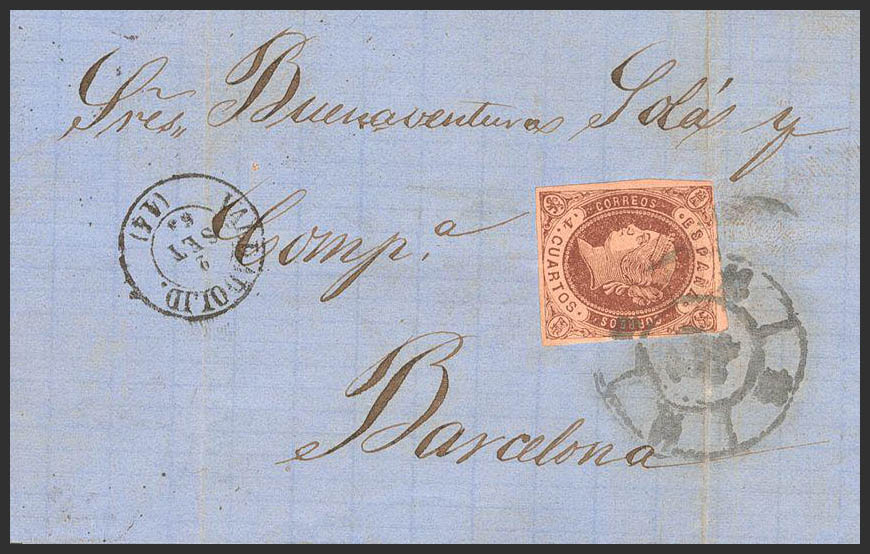 Sres,, Buenaventura Solás y
Comp.ª
Barcelona
VALLADOLID.
2
SET
63
(44)
CORREOS
ESPAÑA
4 CUARTOS